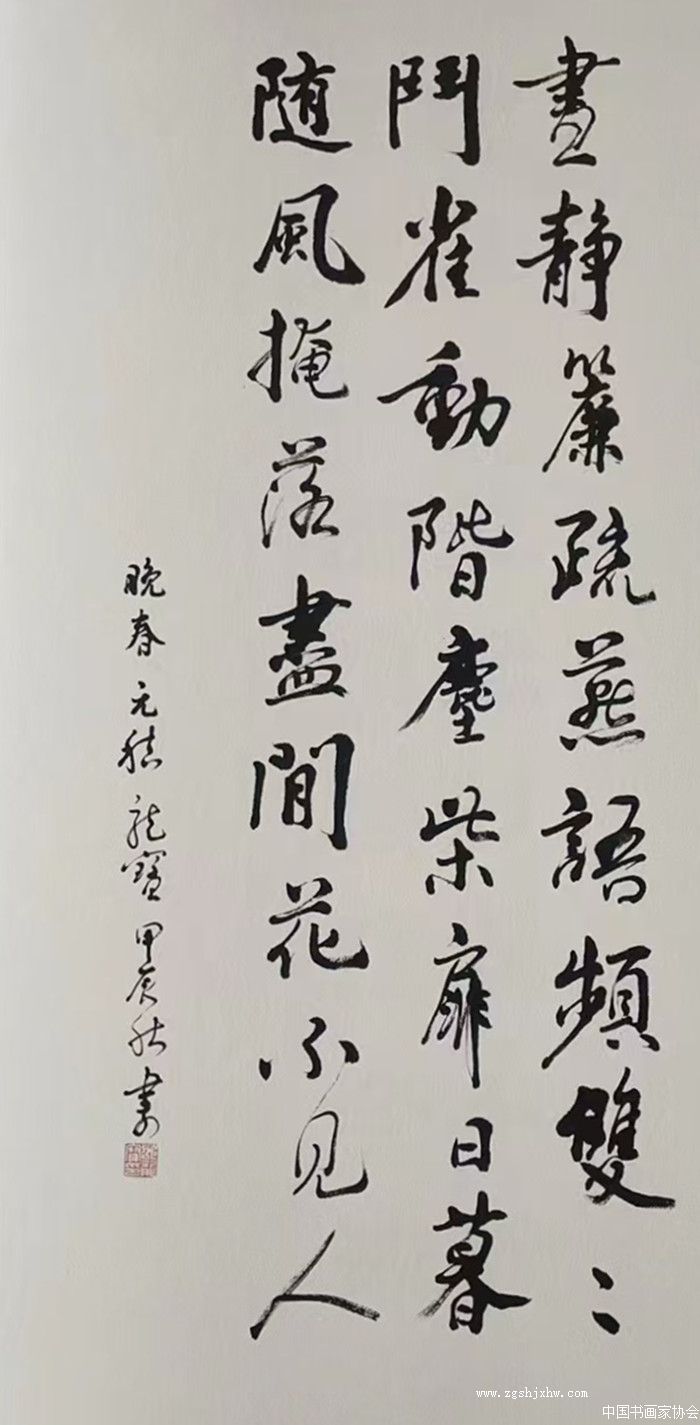 晝静簾疏燕語頻雙〻
鬥雀動階塵柴扉日暮
随風掩落盡閒花不見人
晚春元稹龍寶甲辰秋書
www.zgshjxhw.com
中国书画家协会